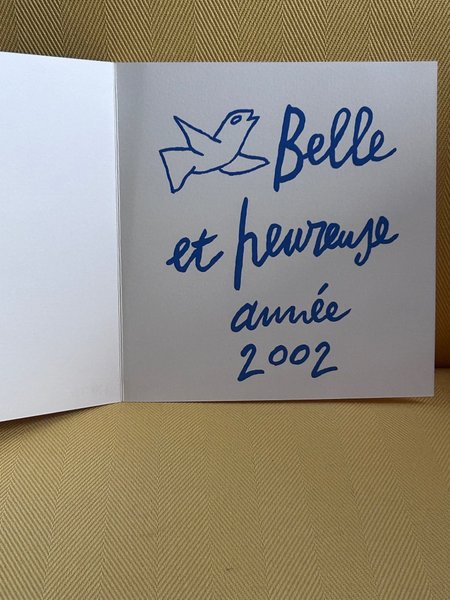 Belle
et heureuse
année
2002